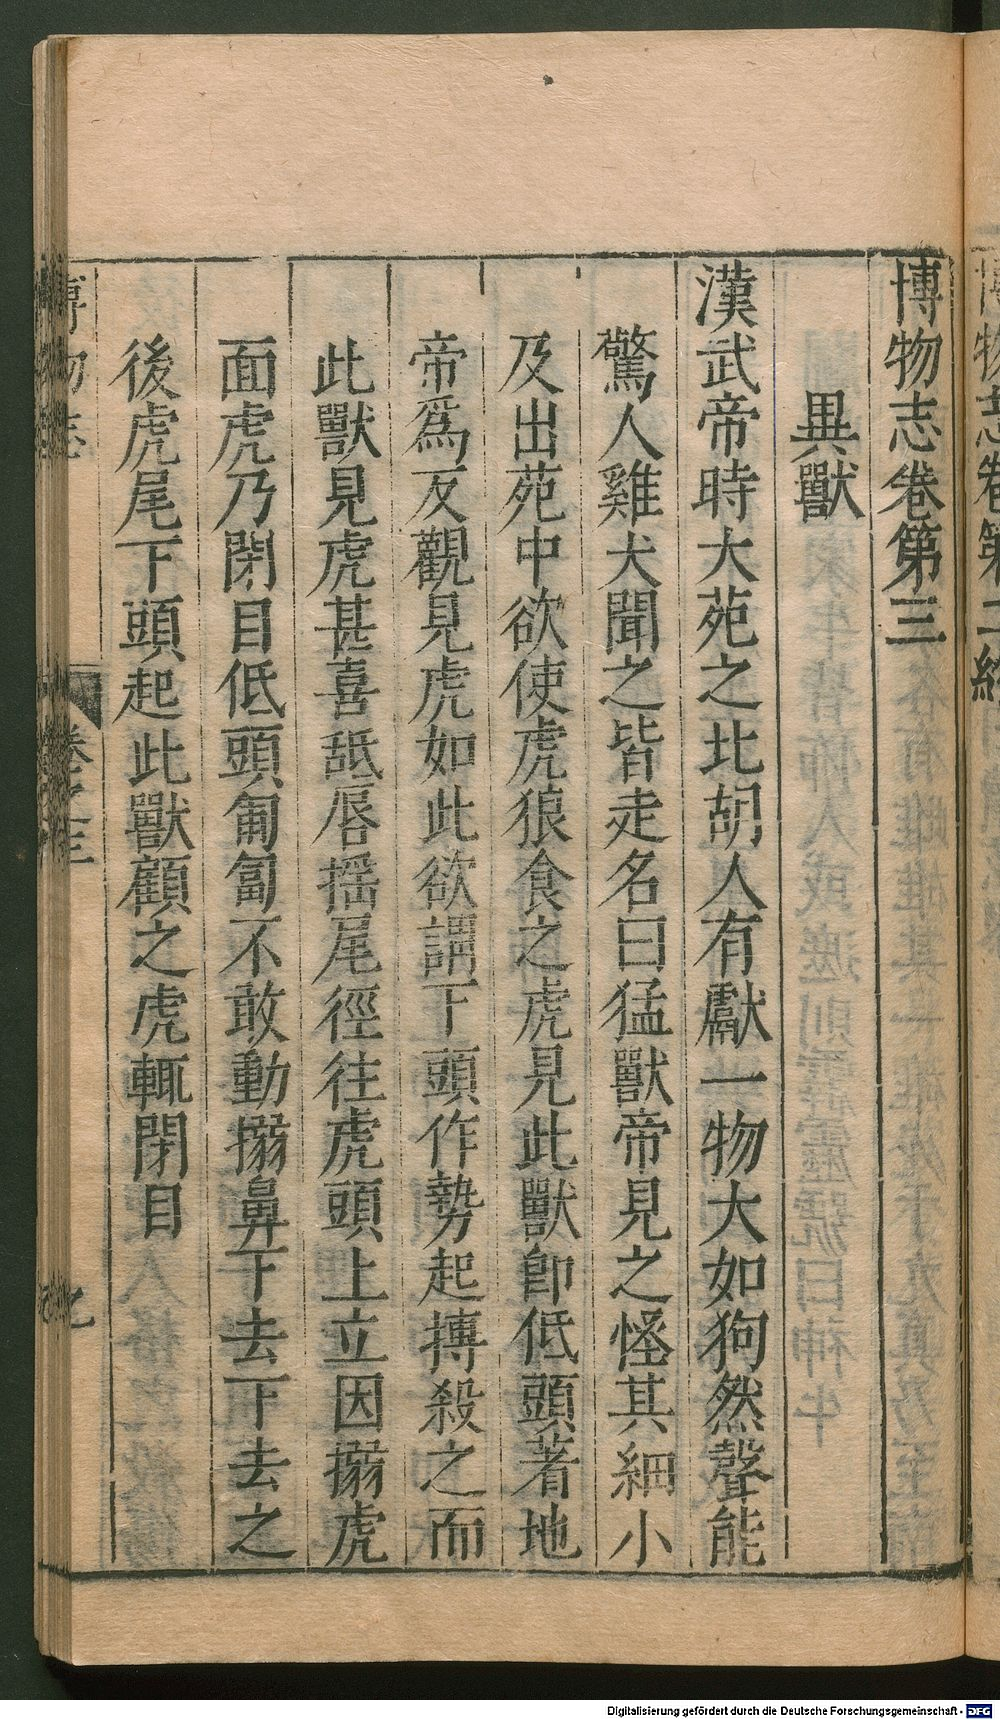 博物志卷第三
異獸
漢武帝時大苑之北胡人有獻一物大如狗然聲能
驚人雞犬聞之皆走名曰猛獸帝見之怪其細小
及出苑中欲使虎狼食之虎見此獸即低頭著地
帝為反觀見虎如此欲謂下頭作勢起搏殺之而
此獸見虎甚喜舐唇搖尾徑往虎頭上立因搦虎
面虎乃閉目低頭匍匐不敢動搦鼻下去下去之
後虎尾下頭起此獸顧之虎輒閉目
博物志
卷之三
九
博物志卷第二終
Digitalisierung gefördert durch die Deutsche Forschungsgemeinschaft - DFG